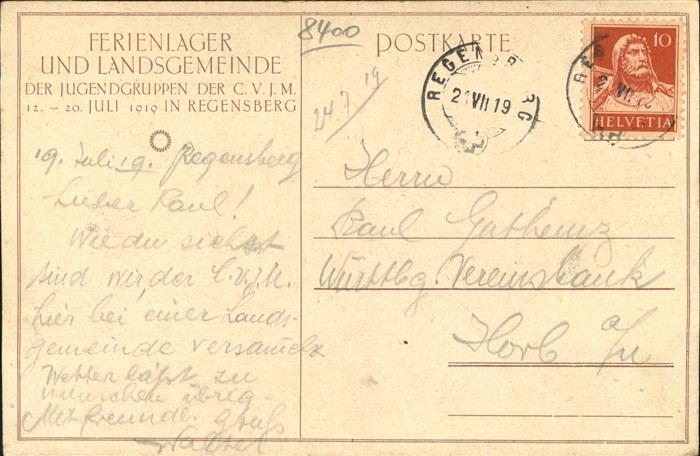 FERIENLAGER
UND LANDSGEMEINDE
DER JUGENDGRUPPEN DER C.V.J.M.
12. – 20. JULI 1919 IN REGENSBERG
8400
POSTKARTE
24.7 19
REGENSBERG
21 VII 19
10
HELVETIA
19. Juli 19. Regensberg
Lieber Paul!
Wie du siehst
sind wir, der C.V.J.M.
hier bei einer Lands-
gemeinde versammelt
Wetter läßt zu
wünschen übrig
Mit Freunde. Gruß
Walter
Herrn
Paul
Württbg. Vereinsbank
Horb a/N